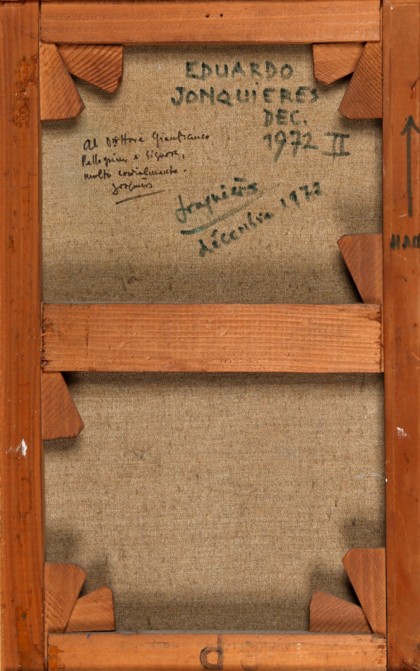 EDUARDO
JONQUIERES
DEC.
1972 II
Al Dottore Gianfranco
Pellegrini e Signora,
molto cordialmente.
Jonquières
Jonquières
décembre 1972
HAU